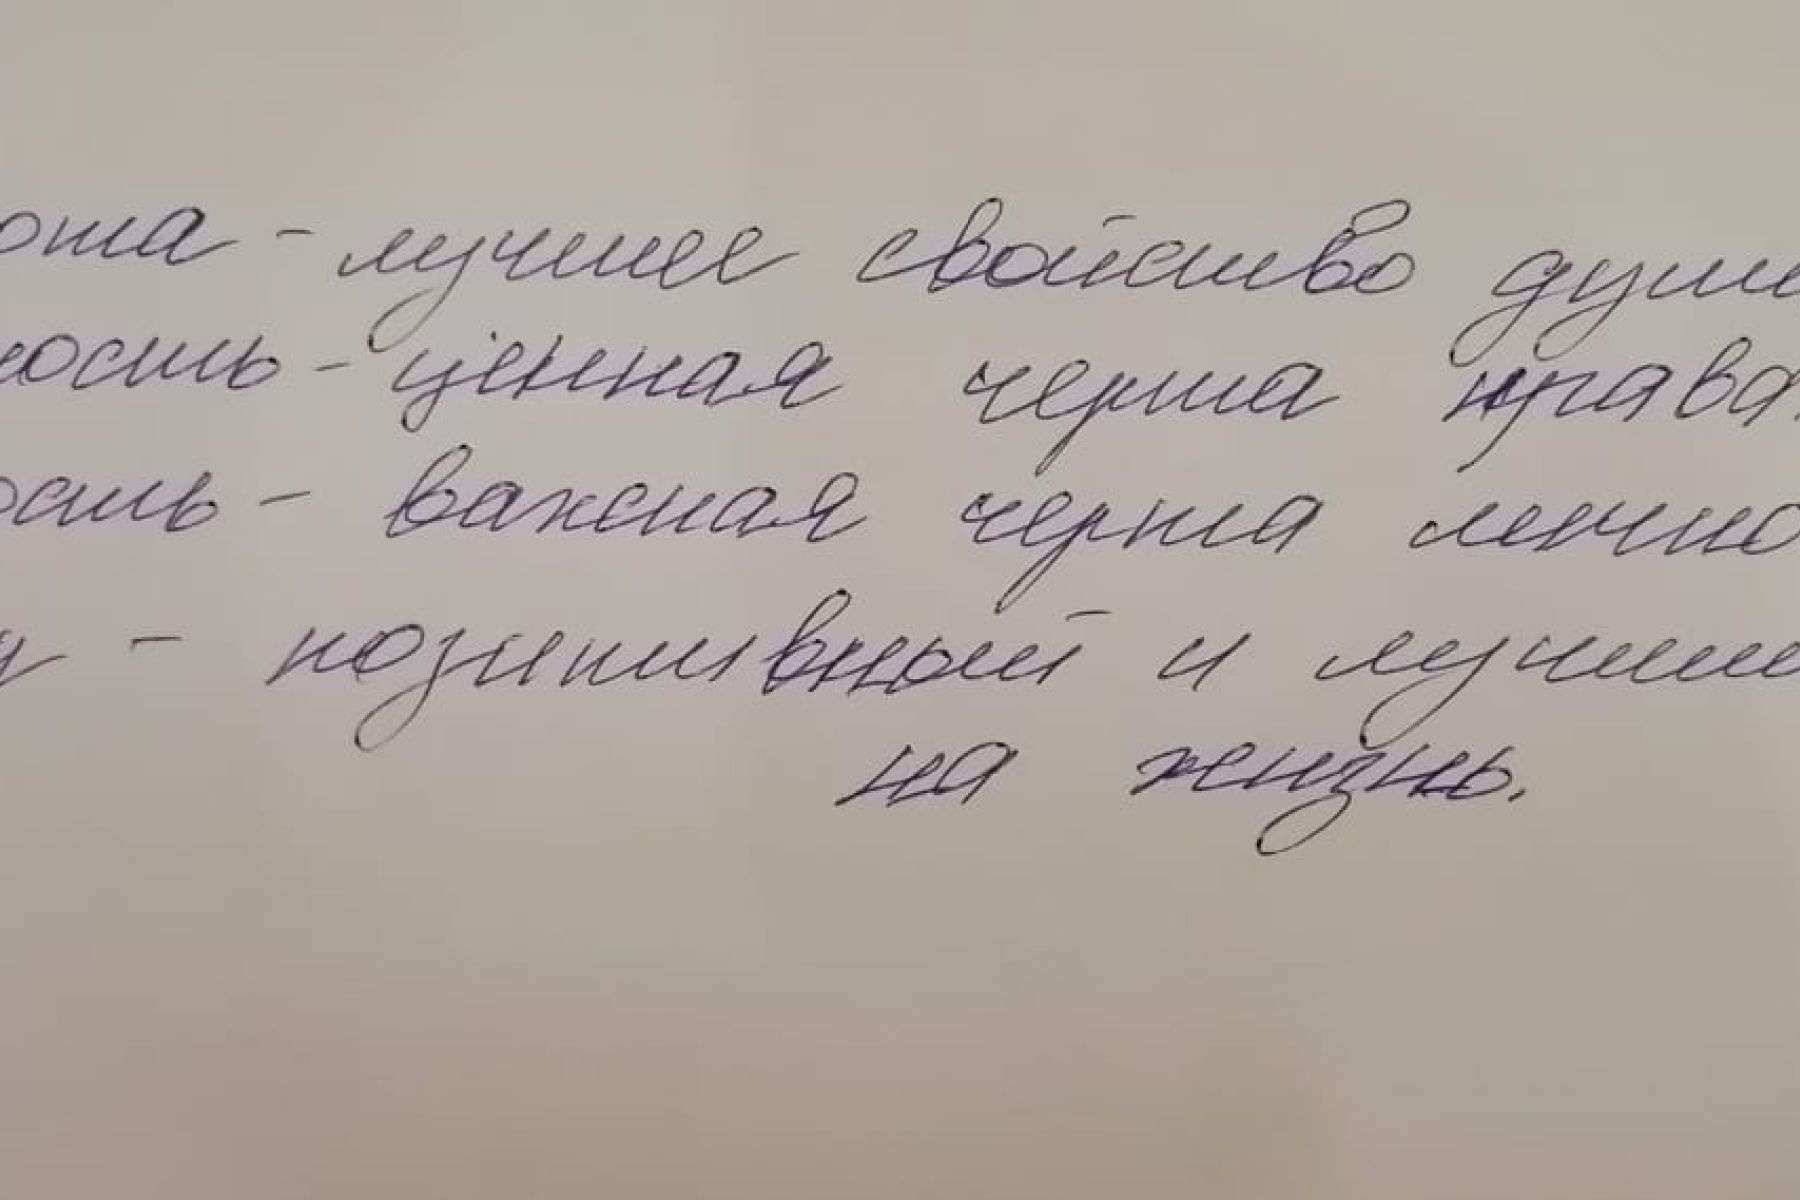 ота - лучшее свойство душ
ность - ценная черта нрава
ость - важная черта лично
у - позитивный и лучши
на жизнь.